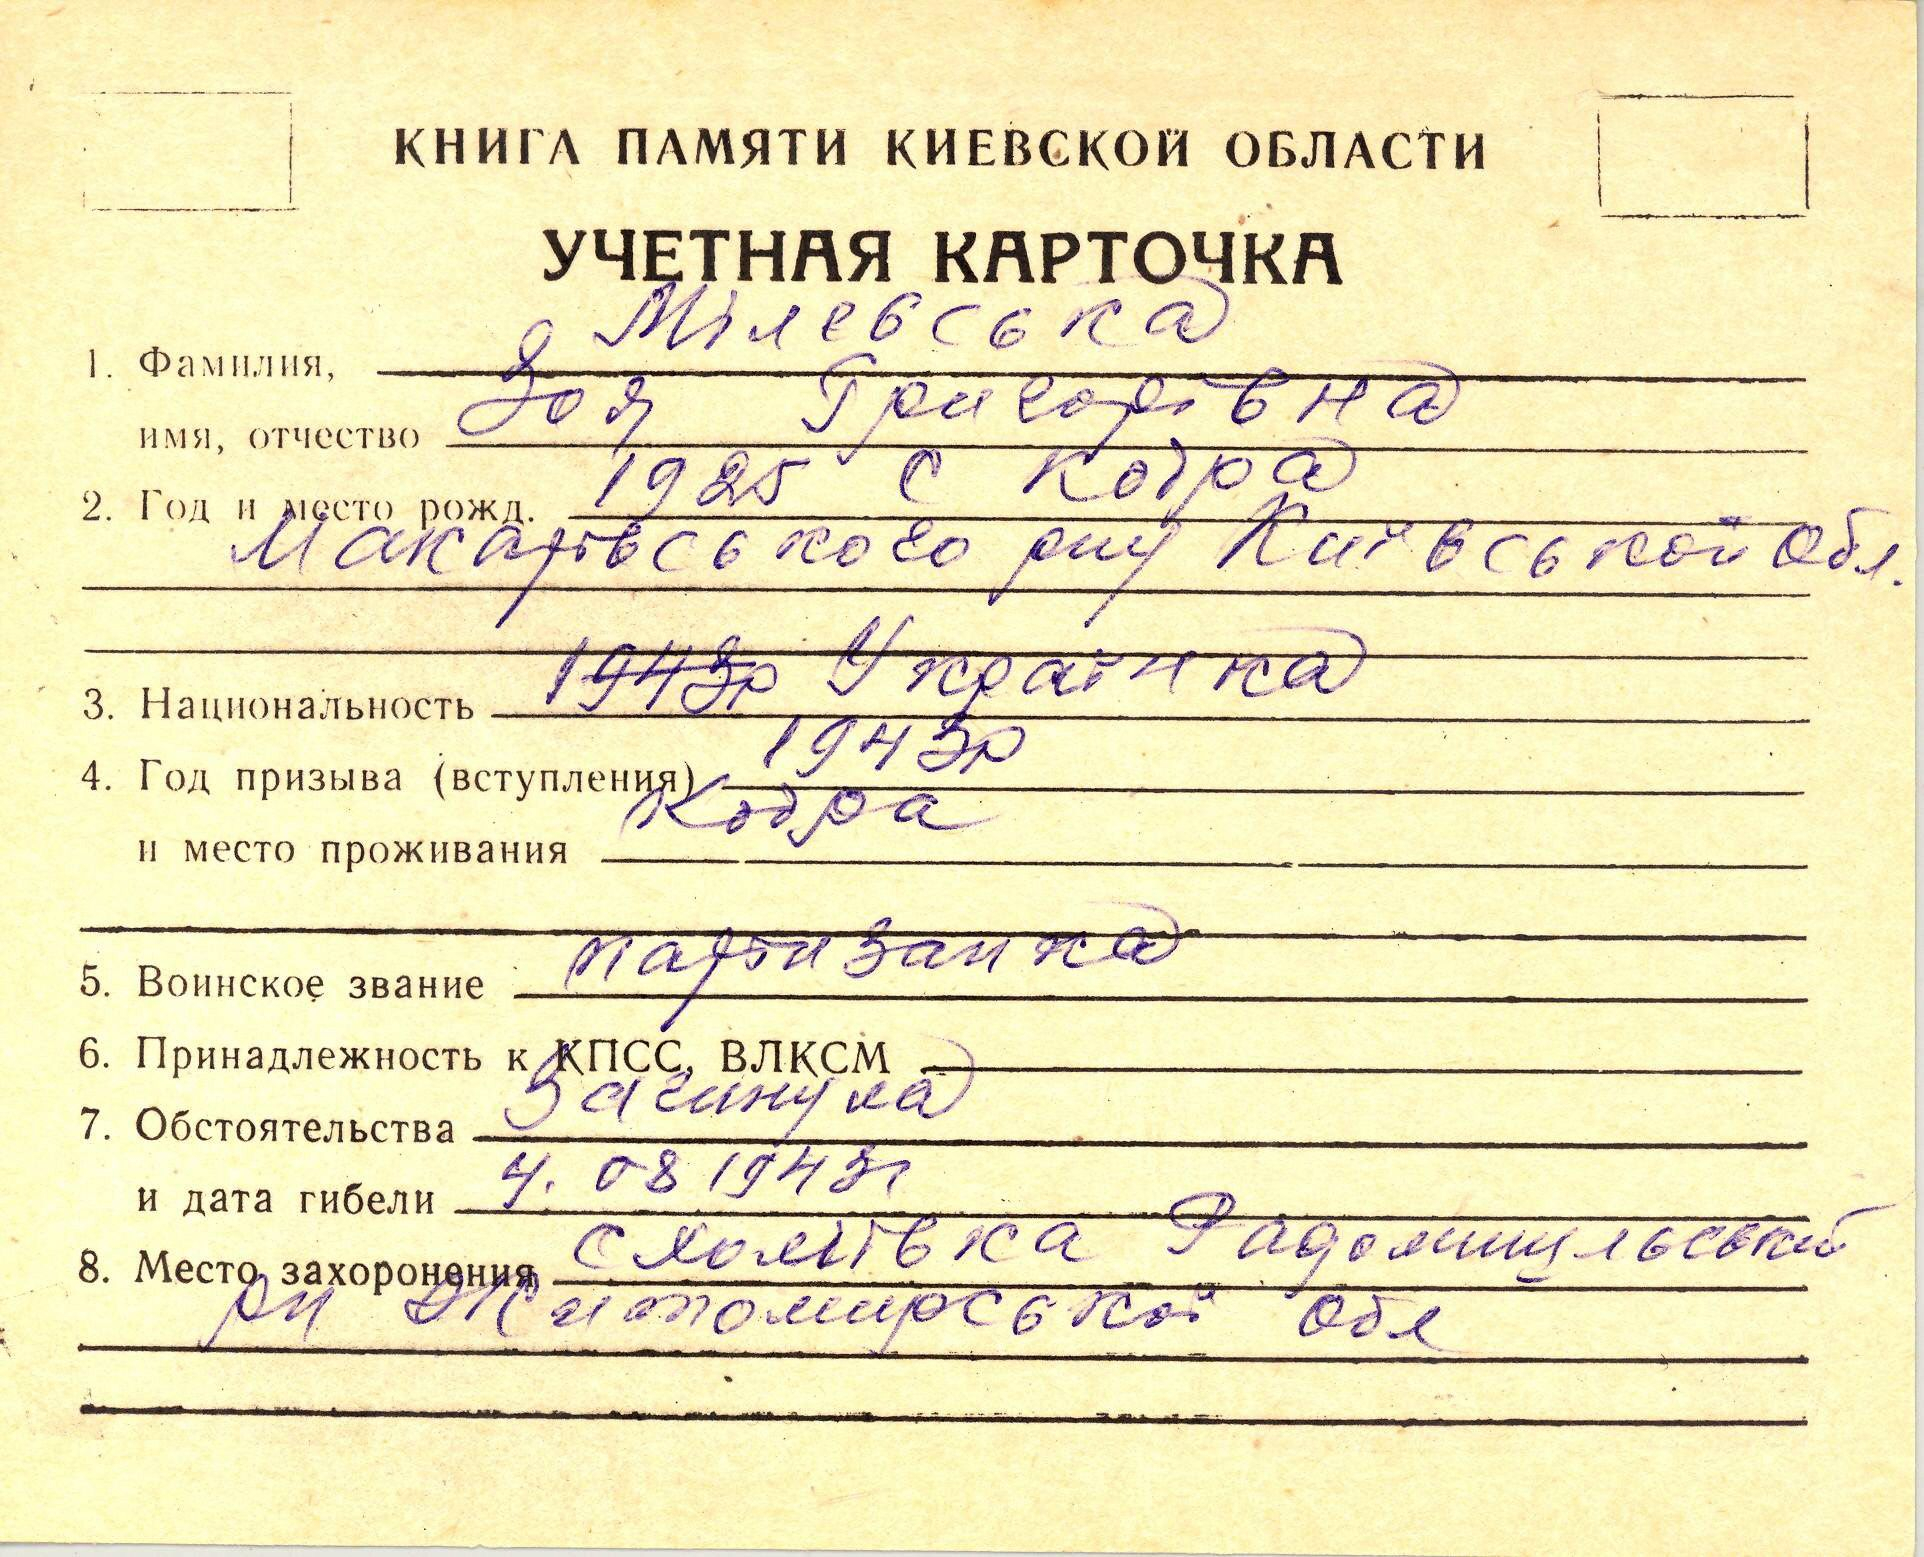 КНИГА ПАМЯТИ КИЕВСКОЙ ОБЛАСТИ
УЧЕТНАЯ КАРТОЧКА
Мілевська
1. Фамилия,
Зоя Григорівна
имя, отчество
1925 с Кодра
2. Год и место рожд.
Макарівського рну Київської обл.
1943р Українка
3. Национальность
1943р
4. Год призыва (вступления)
Кодра
и место проживания
партизанка
5. Воинское звание
6. Принадлежность к КПСС, ВЛКСМ
Загинула
7. Обстоятельства
4. 08 1943г
и дата гибели
с Радомишльський
8. Место захоронения
рн Житомирської обл